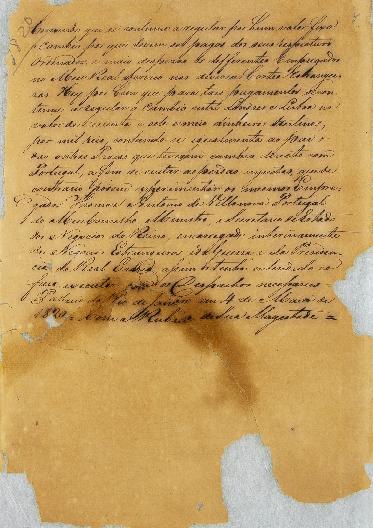 Convindo que se continue a regular por hum valor fixo
o cambio por que devem ser pagos dos seus respectivos
Ordenados, e mais despezas os differentes Empregados
no Meu Real Serviço nas diversas Cortes Estrangei-
ras Hey por bem que para taes pagamentos se con-
tinue a regular o cambio entre Londres e Lisboa no
valor de secenta e sete e meio dinheiros sterlinos,
por mil reis, contando-se igualmente ao par
das outras Praças que tiverem cambio directo com
Portugal, a fim de evitar as perdas injustas, que de
contrario podem experimentar os mesmos Empre-
gados. Thomaz Antonio de Villanova Portugal
do Meu Conselho Ministro, e Secretario de Estado
dos Negocios do Reino, encarregado interinamente
dos Negocios Estrangeiros, e da Guerra e da Presiden-
cia do Real Erario, assim o tenha entendido e o
faça executar com os Despachos necessarios
Palacio do Rio de Janeiro em 4 de Maio de
1820 = Com a Rubrica de Sua Magestade =